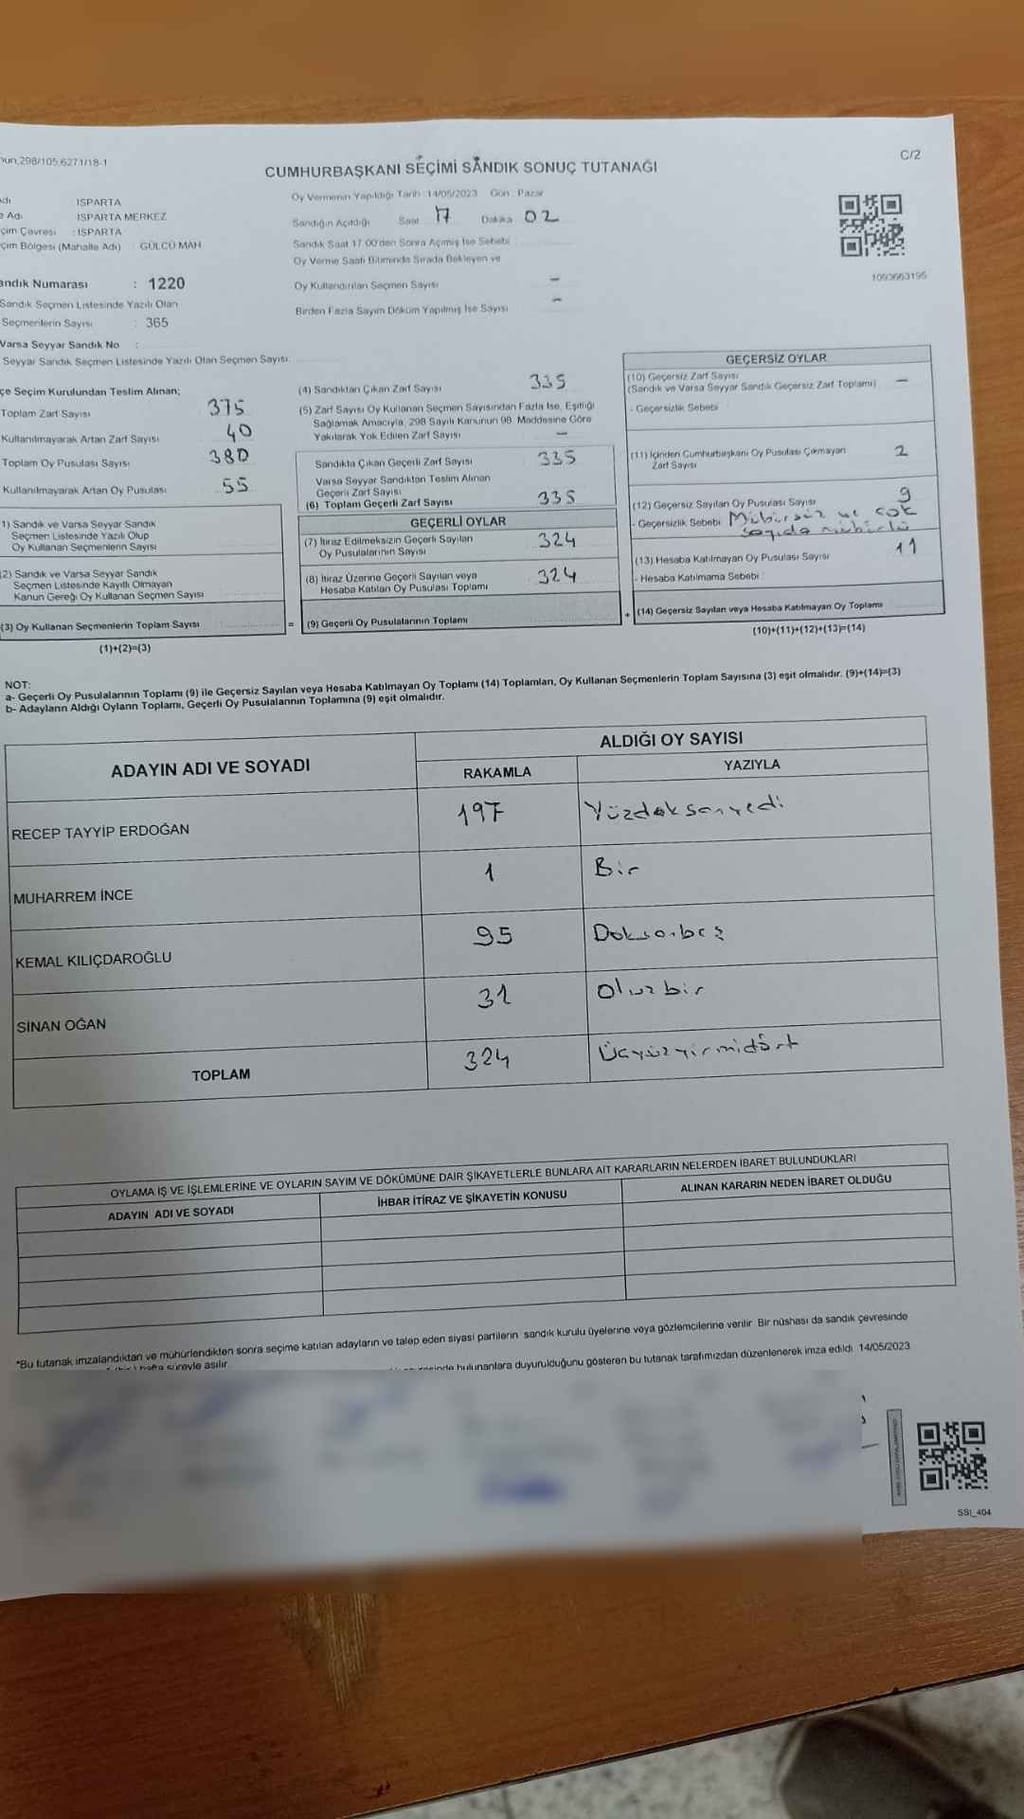 298/105,6271/18-1
C/2
CUMHURBAŞKANI SEÇİMİ SANDIK SONUÇ TUTANAĞI
Oy Vermenin Yapıldığı Tarih : 14/05/2023 Gün : Pazar
ISPARTA
ISPARTA MERKEZ
Sandığın Açıldığı Saat 17 Dakika 02
: ISPARTA
Sandık Saat 17.00'den Sonra Açılmış İse Sebebi
Bölgesi (Mahalle Adı) : GÜLCÜ MAH
Oy Verme Saati Bitiminde Sırada Bekleyen ve
Oy Kullandırılan Seçmen Sayısı -
1093663195
Numarası : 1220
Sandık Seçmen Listesinde Yazılı Olan
Birden Fazla Sayım Döküm Yapılmış İse Sayısı -
Seçmenlerin Sayısı : 365
Varsa Seyyar Sandık No :
Seyyar Sandık Seçmen Listesinde Yazılı Olan Seçmen Sayısı:
Seçim Kurulundan Teslim Alınan;
Toplam Zarf Sayısı 375
Kullanılmayarak Artan Zarf Sayısı 40
Toplam Oy Pusulası Sayısı 380
Kullanılmayarak Artan Oy Pusulası 55
1) Sandık ve Varsa Seyyar Sandık
Seçmen Listesinde Yazılı Olup
Oy Kullanan Seçmenlerin Sayısı
2) Sandık ve Varsa Seyyar Sandık
Seçmen Listesinde Kayıtlı Olmayan
Kanun Gereği Oy Kullanan Seçmen Sayısı
(3) Oy Kullanan Seçmenlerin Toplam Sayısı
(1)+(2)=(3)
(4) Sandıktan Çıkan Zarf Sayısı 335
(5) Zarf Sayısı Oy Kullanan Seçmen Sayısından Fazla İse, Eşitliği
Sağlamak Amacıyla, 298 Sayılı Kanunun 98. Maddesine Göre
Yakılarak Yok Edilen Zarf Sayısı -
Sandıkta Çıkan Geçerli Zarf Sayısı 335
Varsa Seyyar Sandıktan Teslim Alınan
Geçerli Zarf Sayısı
(6) Toplam Geçerli Zarf Sayısı 335
GEÇERLİ OYLAR
(7) İtiraz Edilmeksizin Geçerli Sayılan
Oy Pusulalarının Sayısı 324
(8) İtiraz Üzerine Geçerli Sayılan veya
Hesaba Katılan Oy Pusulası Toplamı 324
= (9) Geçerli Oy Pusulalarının Toplamı
GEÇERSİZ OYLAR
(10) Geçersiz Zarf Sayısı
(Sandık ve Varsa Seyyar Sandık Geçersiz Zarf Toplamı) -
- Geçersizlik Sebebi
(11) İçinden Cumhurbaşkanı Oy Pusulası Çıkmayan
Zarf Sayısı 2
(12) Geçersiz Sayılan Oy Pusulası Sayısı 9
- Geçersizlik Sebebi Mühürsüz ve çok
sayıda mühürlü
(13) Hesaba Katılmayan Oy Pusulası Sayısı 11
- Hesaba Katılmama Sebebi
+ (14) Geçersiz Sayılan veya Hesaba Katılmayan Oy Toplamı
(10)+(11)+(12)+(13)=(14)
NOT:
a- Geçerli Oy Pusulalarının Toplamı (9) ile Geçersiz Sayılan veya Hesaba Katılmayan Oy Toplamı (14) Toplamları, Oy Kullanan Seçmenlerin Toplam Sayısına (3) eşit olmalıdır. (9)+(14)=(3)
b- Adayların Aldığı Oyların Toplamı, Geçerli Oy Pusulalarının Toplamına (9) eşit olmalıdır.
ADAYIN ADI VE SOYADI
ALDIĞI OY SAYISI
RAKAMLA YAZIYLA
RECEP TAYYİP ERDOĞAN 197 Yüzdoksanyedi
MUHARREM İNCE 1 Bir
KEMAL KILIÇDAROĞLU 95 Doksanbeş
SİNAN OĞAN 31 Otuzbir
TOPLAM 324 Üçyüzyirmidört
OYLAMA İŞ VE İŞLEMLERİNE VE OYLARIN SAYIM VE DÖKÜMÜNE DAİR ŞİKAYETLERLE BUNLARA AİT KARARLARIN NELERDEN İBARET BULUNDUKLARI
ADAYIN ADI VE SOYADI İHBAR İTİRAZ VE ŞİKAYETİN KONUSU ALINAN KARARIN NEDEN İBARET OLDUĞU
*Bu tutanak imzalandıktan ve mühürlendikten sonra seçime katılan adayların ve talep eden siyasi partilerin sandık kurulu üyelerine veya gözlemcilerine verilir. Bir nüshası da sandık çevresinde
hafta süreyle asılır.
bulunanlara duyurulduğunu gösteren bu tutanak tarafımızdan düzenlenerek imza edildi. 14/05/2023
SSI_404